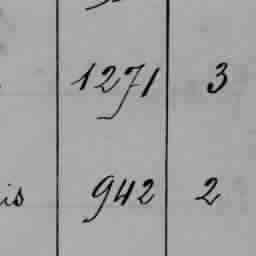 1271 3
is 942 2